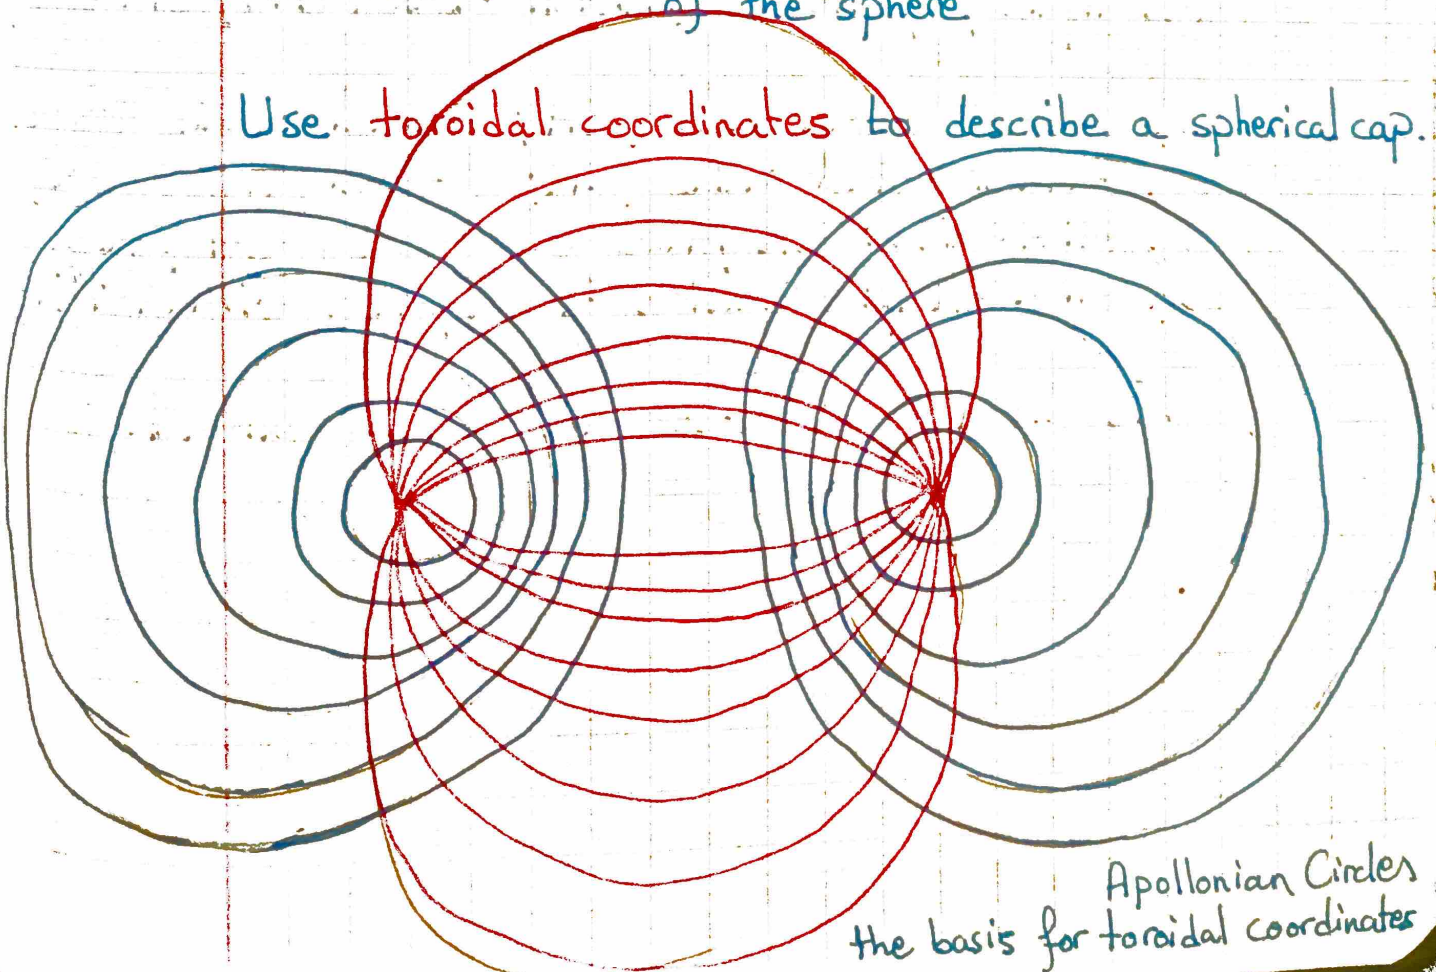 of the sphere
Use toroidal coordinates to describe a spherical cap.
Apollonian Circles
the basis for toroidal coordinates